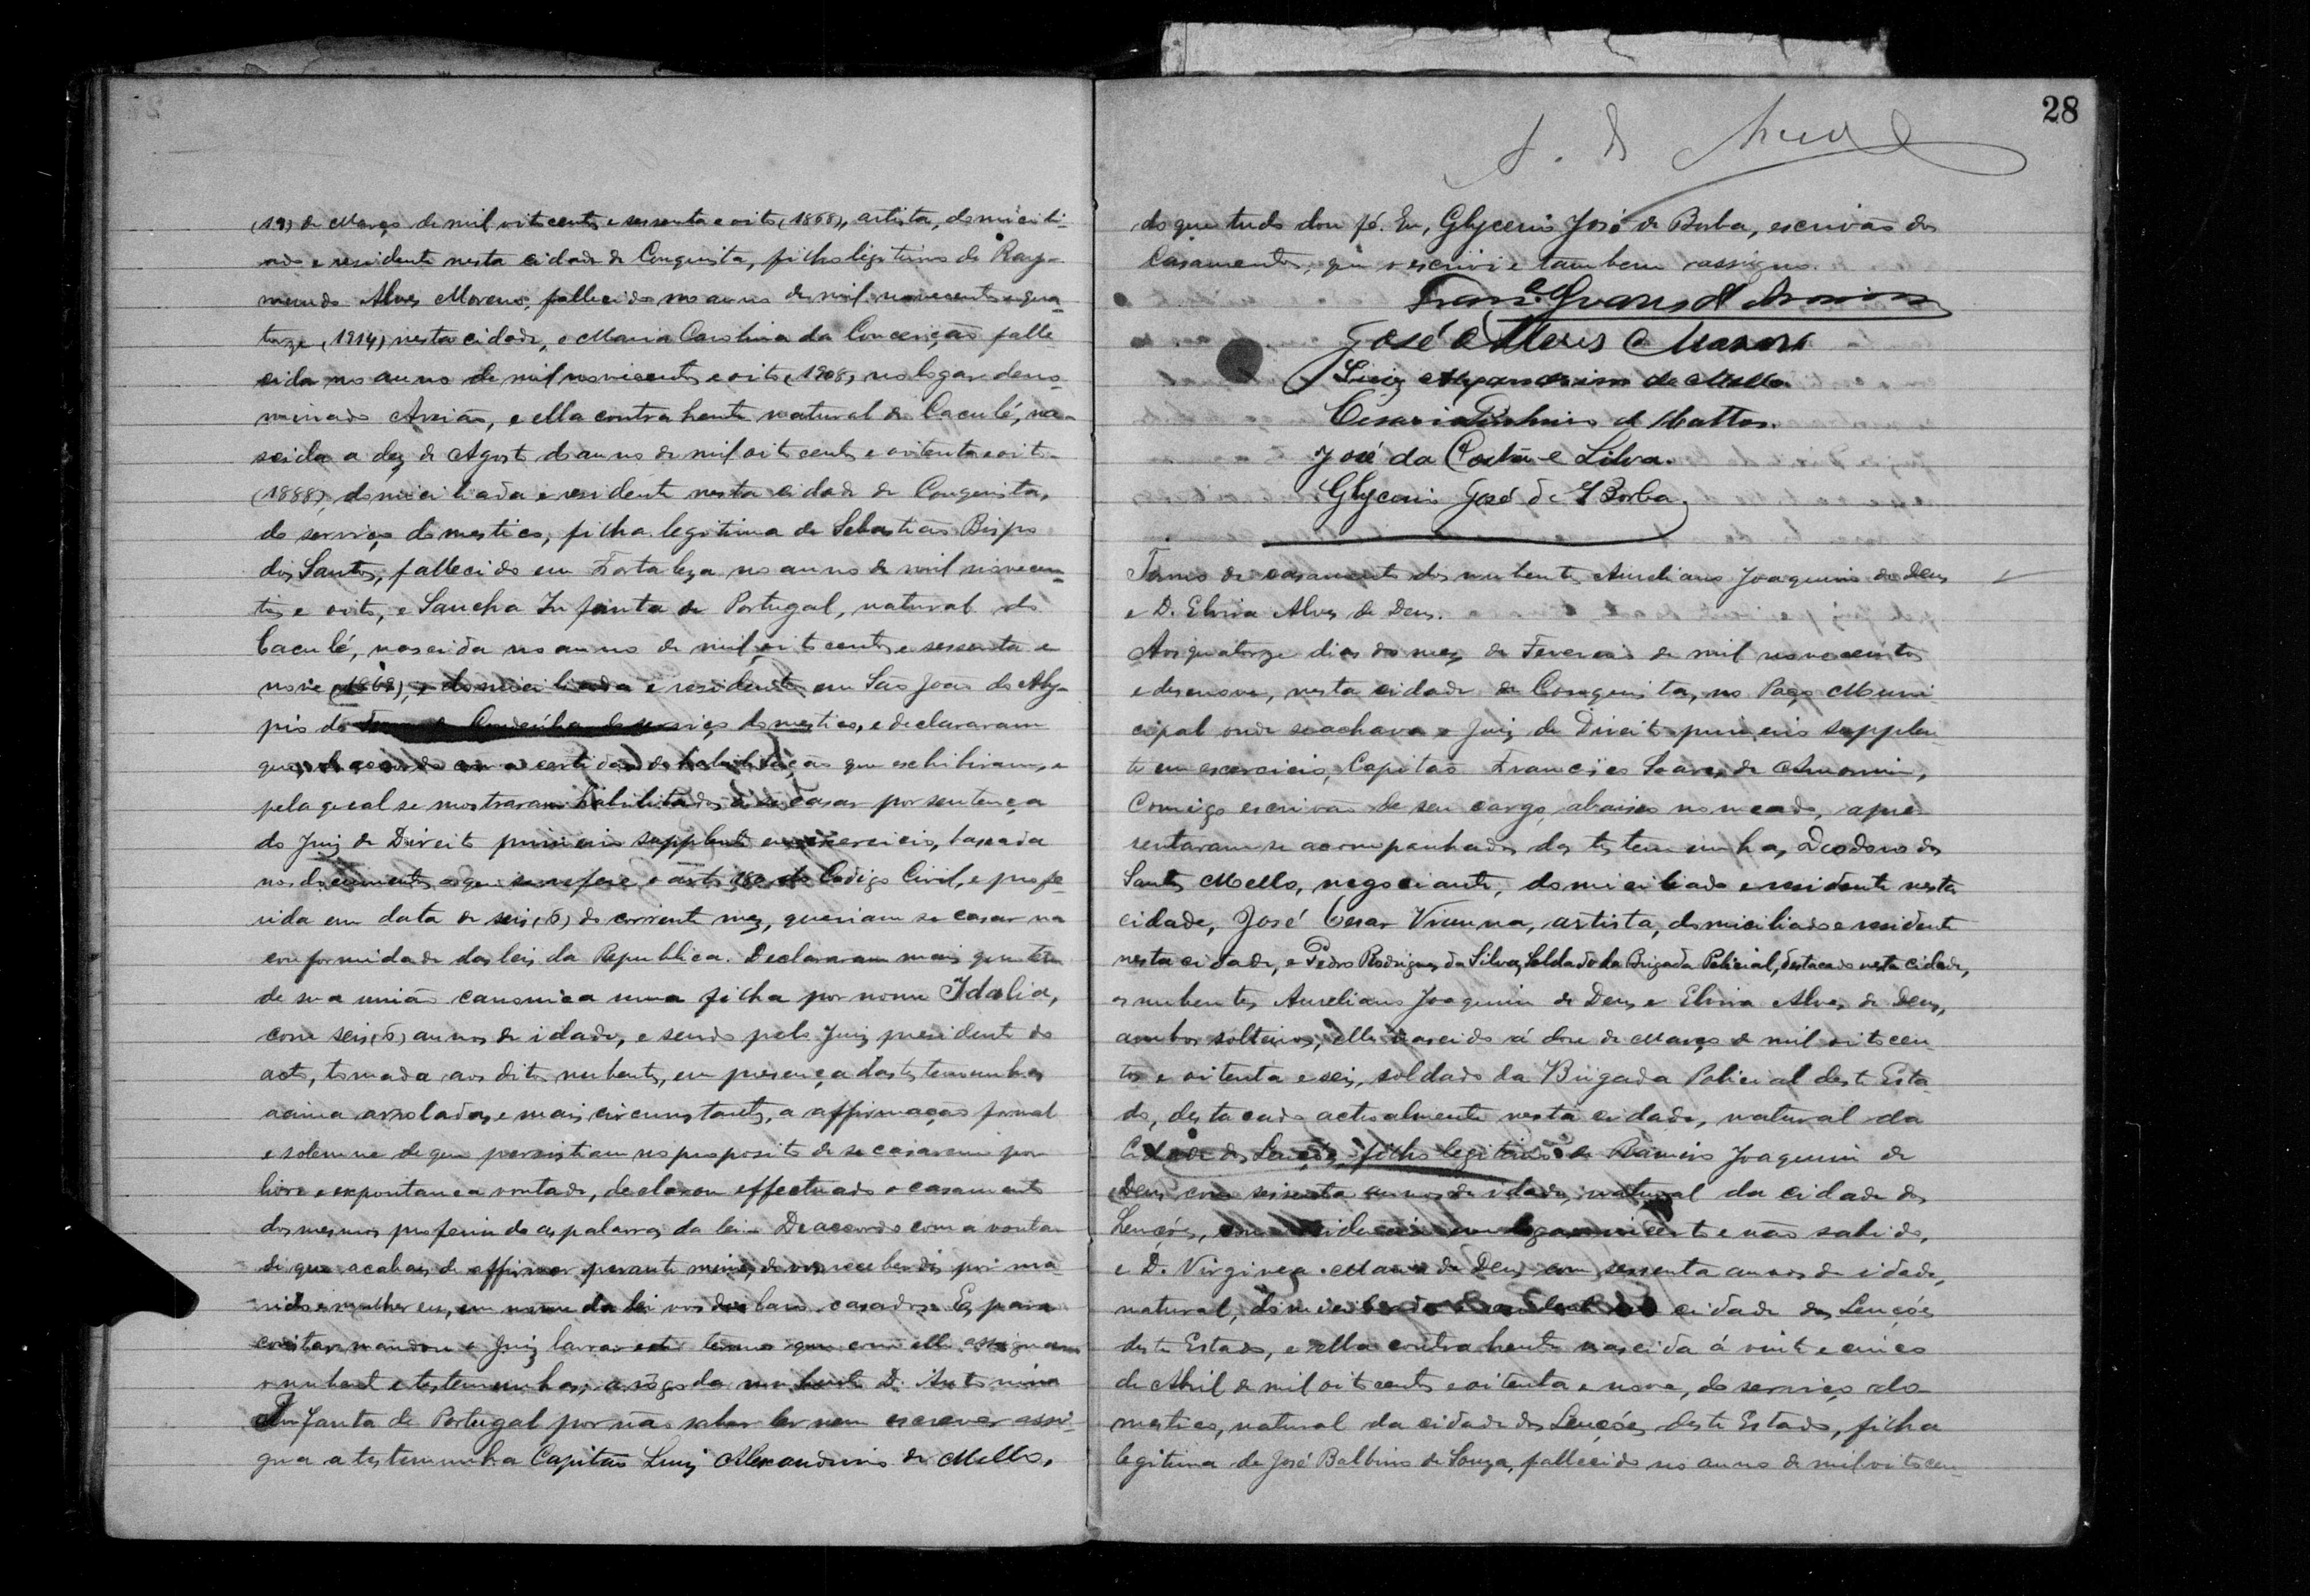 (19) de Março de mil oitocentos e sessenta e oito (1868), artista, domicili-
ado e residente nesta cidade de Conquista, filho legitimo de Ray-
mundo Alves Moreno, fallecido no anno de mil novecentos e qua-
torze (1914) nesta cidade, e Maria Carolina da Conceição falle
cida no anno de mil novecentos e oito (1908) no logar deno-
minado Areião, e ella contrahente natural de Caculé, na-
scida a dez de Agosto do anno de mil oito centos e oitenta e oito
(1888), domiciliada e residente nesta cidade de Conquista,
do serviço domestico, filha legitima de Sebastião Bispo
dos Santos, fallecido em Fortaleza no anno de mil novecen-
tos e oito, e Sancha Infanta de Portugal, natural do
Caculé, nascida no anno de mil oito centos e sessenta e
nove (1869), e domiciliada e residente em São João do Aly-
pio do serviço domestico, e declararam
que, de accordo com a certidão de habilitação que exhibiram, e
pela qual se mostraram habilitados a se casar por sentença
do Juiz de Direito primeiro supplente em exercicio, baseada
nos documentos a que se refere o art. 180 do Codigo Civil, e profe-
rida em data de seis (6) do corrente mez, queriam se casar na
conformidade das leis da Republica. Declararam mais que têm
de sua união canonica uma filha por nome Idalia,
com seis (6) annos de idade, e sendo pelo Juiz presidente do
acto, tomada aos ditos nubentes, em presença das testemunhas
acima arroladas e mais circunstantes, a affirmação formal
e solemne de que persistiam no proposito de se casarem por
livre e expontanea vontade, declarou effectuado o casamento
dos mesmos proferindo as palavras da lei: De accordo com a vonta-
de que acabaes de affirmar perante mim, de vos receberdes por ma-
rido e mulher eu, em nome da lei vos declaro casados. E, para
constar mandou o Juiz lavrar este termo que com elle assignam
o nubente e testemunhas, a rogo da nubente D. Antonina
Infanta de Portugal por não saber ler nem escrever assi-
gna a testemunha Capitão Luiz Alexandrino de Mello,
28
do que tudo dou fé. Eu, Glycerio José de Borba, escrivão dos
Casamentos, que o escrevi e tambem assigno.
Franco. Soares d'Amorim
José Alves Moreno
Luiz Alexandrino de Mello
Cesario Pinheiro de Mattos.
José da Costa e Silva.
Glycerio José de Borba
Termo de casamento dos nubentes Aureliano Joaquim de Deus
e D. Elvira Alves de Deus.
Aos quatorze dias do mez de Fevereiro de mil novecentos
e desenove, nesta cidade de Conquista, no Paço Muni
cipal onde se achava o Juiz de Direito primeiro supplen
te em exercicio, Capitão Francisco Soares de Amorim,
comigo escrivão de seu cargo abaixo nomeado, apre
sentaram-se acompanhados das testemunhas, Deodoro dos
Santos Mello, negociante, domiciliado e residente nesta
cidade, José Cesar Vianna, artista, domiciliado e residente
nesta cidade, e Pedro Rodrigues da Silva, Soldado da Brigada Policial, destacado nesta cidade,
os nubentes Aureliano Joaquim de Deus e Elvira Alves de Deus,
ambos solteiros, elle nascido á doze de Março de mil oitocen-
tos e oitenta e seis, soldado da Brigada Policial deste Esta-
do, destacado actualmente nesta cidade, natural da
Cidade dos Lençóes, filho legitimo de Ramiro Joaquim de
Deus, com sessenta annos de idade, natural da cidade dos
Lençóes, com residencia em logar incerto e não sabido,
e D. Virginea Maria de Deus, com sessenta annos de idade,
natural, domiciliada e residente na cidade dos Lençóes
deste Estado, e ella contrahente nascida á vinte e cinco
de Abril de mil oitocentos e oitenta e nove, do serviço do-
mestico, natural da cidade dos Lençóes, deste Estado, filha
legitima de José Balbino de Souza, fallecido no anno de mil oitocen-